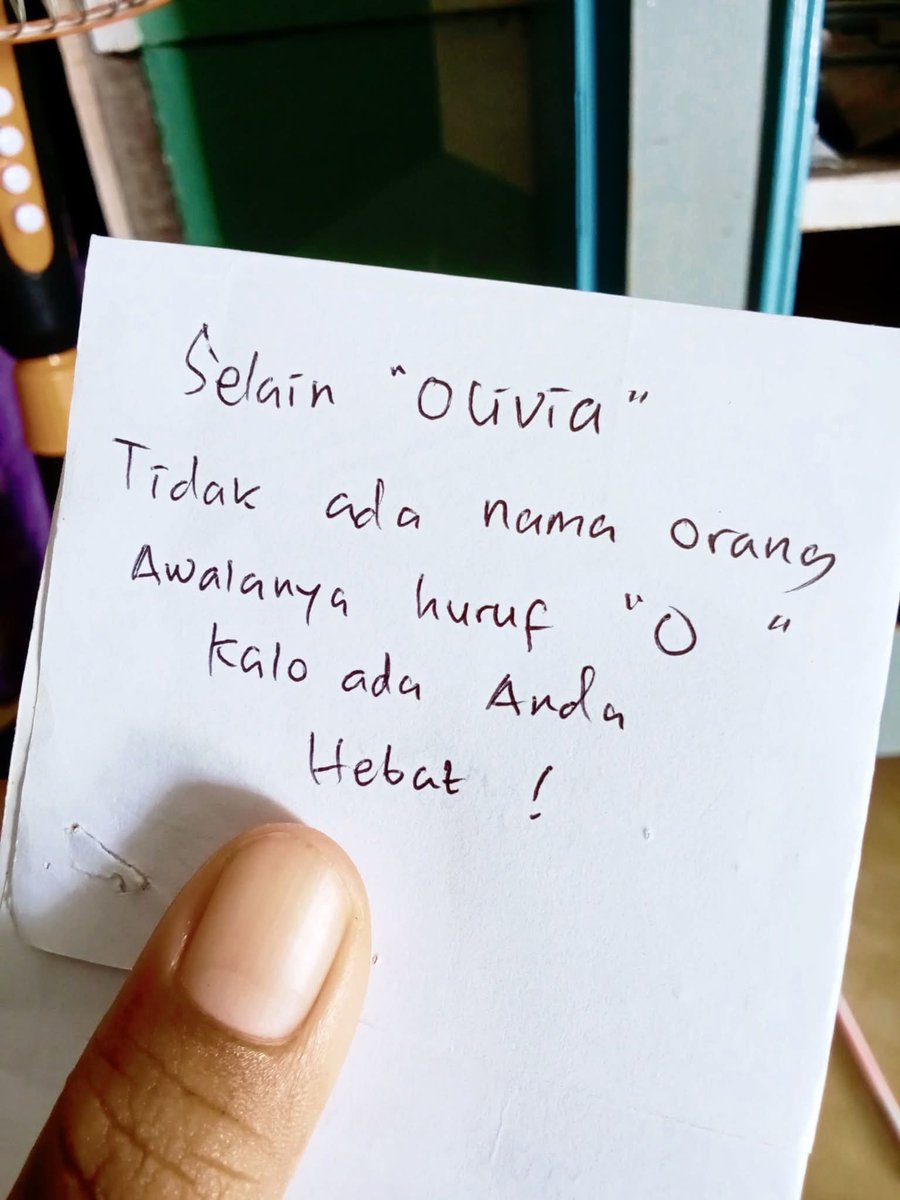 Selain "Olivia"
Tidak ada nama orang
Awalanya huruf "O"
Kalo ada Anda
Hebat !